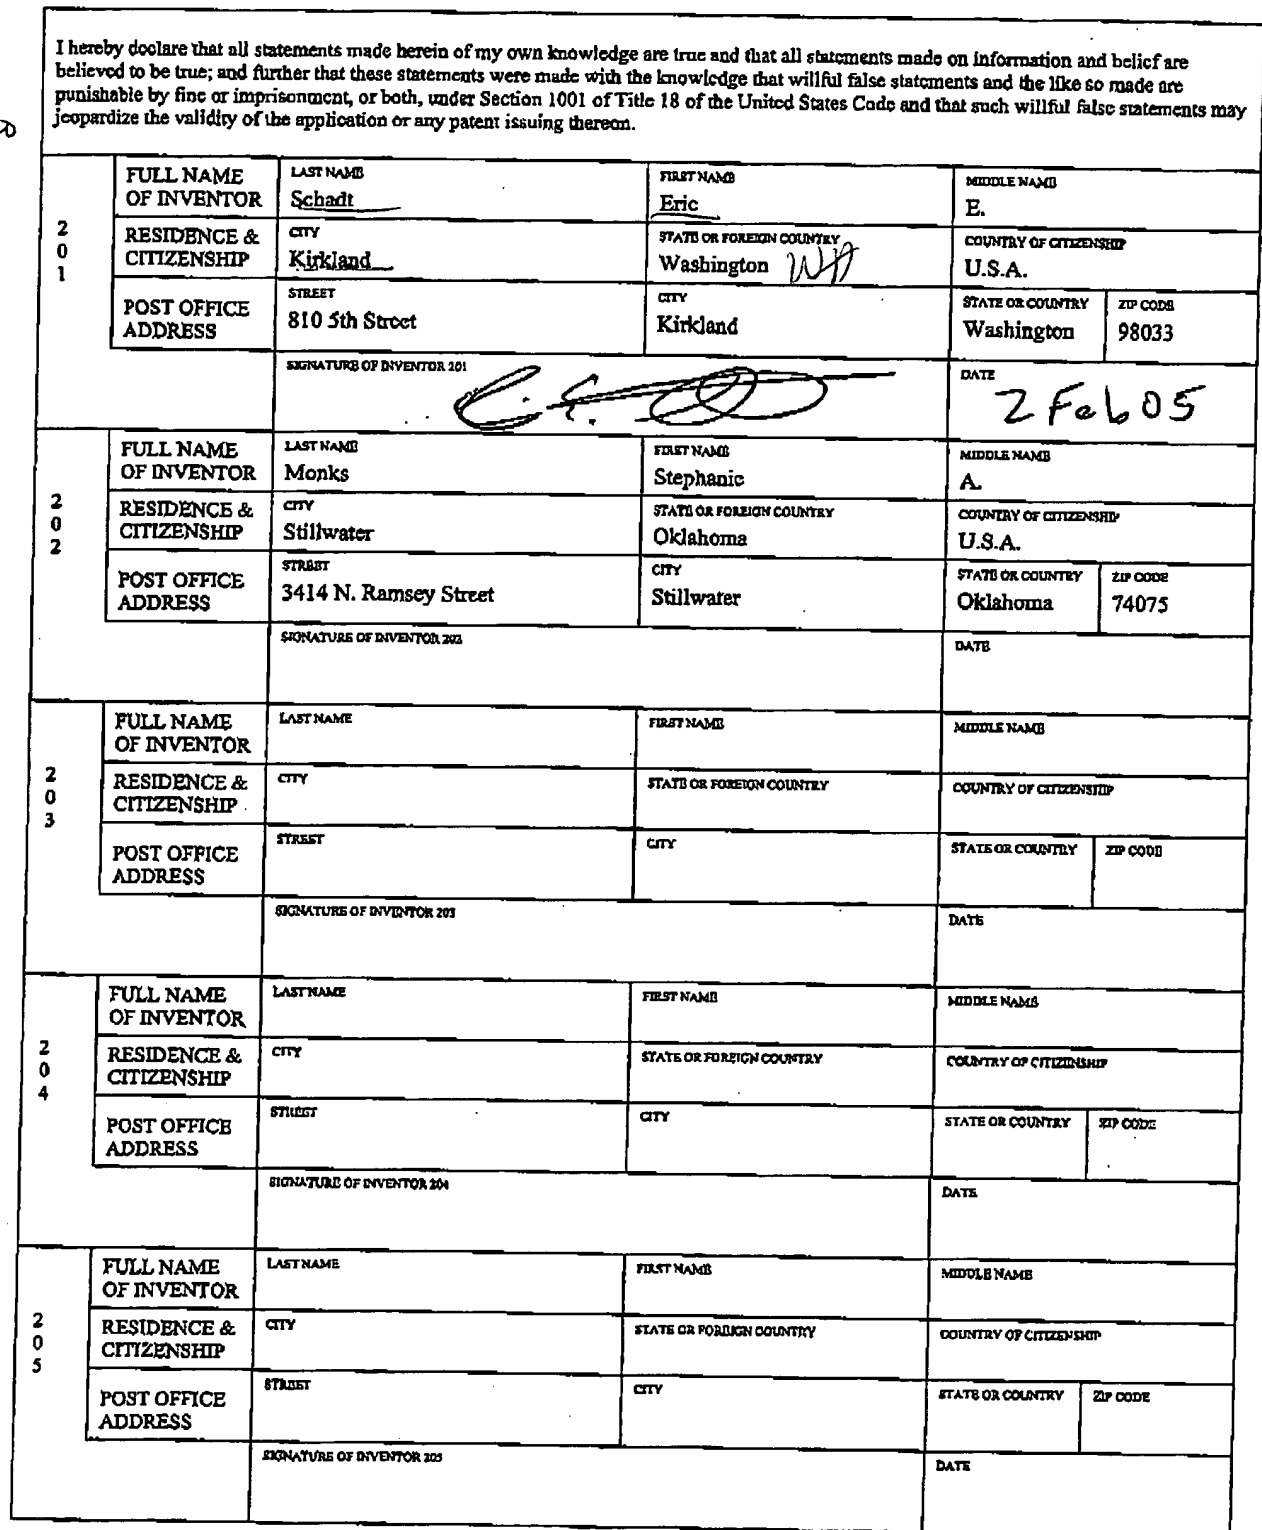 I hereby declare that all statements made herein of my own knowledge are true and that all statements made on information and belief are
believed to be true; and further that these statements were made with the knowledge that willful false statements and the like so made are
punishable by fine or imprisonment, or both, under Section 1001 of Title 18 of the United States Code and that such willful false statements may
jeopardize the validity of the application or any patent issuing thereon.
201
FULL NAME OF INVENTOR
LAST NAME
Schadt
FIRST NAME
Eric
MIDDLE NAME
E.
RESIDENCE & CITIZENSHIP
CITY
Kirkland
STATE OR FOREIGN COUNTRY
Washington WA
COUNTRY OF CITIZENSHIP
U.S.A.
POST OFFICE ADDRESS
STREET
810 5th Street
CITY
Kirkland
STATE OR COUNTRY
Washington
ZIP CODE
98033
SIGNATURE OF INVENTOR 201
DATE
2 Feb 05
202
FULL NAME OF INVENTOR
LAST NAME
Monks
FIRST NAME
Stephanie
MIDDLE NAME
A.
RESIDENCE & CITIZENSHIP
CITY
Stillwater
STATE OR FOREIGN COUNTRY
Oklahoma
COUNTRY OF CITIZENSHIP
U.S.A.
POST OFFICE ADDRESS
STREET
3414 N. Ramsey Street
CITY
Stillwater
STATE OR COUNTRY
Oklahoma
ZIP CODE
74075
SIGNATURE OF INVENTOR 202
DATE
203
FULL NAME OF INVENTOR
LAST NAME
FIRST NAME
MIDDLE NAME
RESIDENCE & CITIZENSHIP
CITY
STATE OR FOREIGN COUNTRY
COUNTRY OF CITIZENSHIP
POST OFFICE ADDRESS
STREET
CITY
STATE OR COUNTRY
ZIP CODE
SIGNATURE OF INVENTOR 203
DATE
204
FULL NAME OF INVENTOR
LAST NAME
FIRST NAME
MIDDLE NAME
RESIDENCE & CITIZENSHIP
CITY
STATE OR FOREIGN COUNTRY
COUNTRY OF CITIZENSHIP
POST OFFICE ADDRESS
STREET
CITY
STATE OR COUNTRY
ZIP CODE
SIGNATURE OF INVENTOR 204
DATE
205
FULL NAME OF INVENTOR
LAST NAME
FIRST NAME
MIDDLE NAME
RESIDENCE & CITIZENSHIP
CITY
STATE OR FOREIGN COUNTRY
COUNTRY OF CITIZENSHIP
POST OFFICE ADDRESS
STREET
CITY
STATE OR COUNTRY
ZIP CODE
SIGNATURE OF INVENTOR 205
DATE